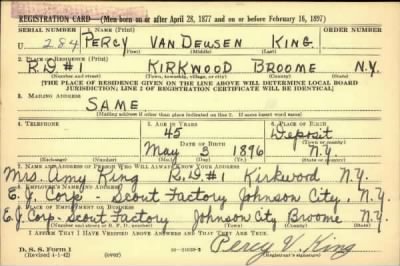 REGISTRATION CARD—(Men born on or after April 28, 1877 and on or before February 16, 1897)
SERIAL NUMBER 1. NAME (Print) ORDER NUMBER
U 284 PERCY VAN DEUSEN KING
(First) (Middle) (Last)
2. PLACE OF RESIDENCE (Print)
R.D #1 KIRKWOOD BROOME N.Y.
(Number and street) (Town, township, village, or city) (County) (State)
[THE PLACE OF RESIDENCE GIVEN ON THE LINE ABOVE WILL DETERMINE LOCAL BOARD
JURISDICTION; LINE 2 OF REGISTRATION CERTIFICATE WILL BE IDENTICAL]
3. MAILING ADDRESS
SAME
(Mailing address if other than place indicated on line 2. If same insert word same)
4. TELEPHONE 5. AGE IN YEARS 6. PLACE OF BIRTH
45 Deposit
DATE OF BIRTH (Town or county)
May 3 1896 N.Y.
(Exchange) (Number) (Mo.) (Day) (Yr.) (State or country)
7. NAME AND ADDRESS OF PERSON WHO WILL ALWAYS KNOW YOUR ADDRESS
Mrs. Amy King R.D #1 Kirkwood N.Y.
8. EMPLOYER'S NAME AND ADDRESS
E.J. Corp. Scout Factory Johnson City, N.Y.
9. PLACE OF EMPLOYMENT OR BUSINESS
E.J. Corp- Scout Factory Johnson City Broome N.Y.
(Number and street or R. F. D. number) (Town) (County) (State)
I AFFIRM THAT I HAVE VERIFIED ABOVE ANSWERS AND THAT THEY ARE TRUE.
D. S. S. Form 1
(Revised 4-1-42) (over) Percy V. King